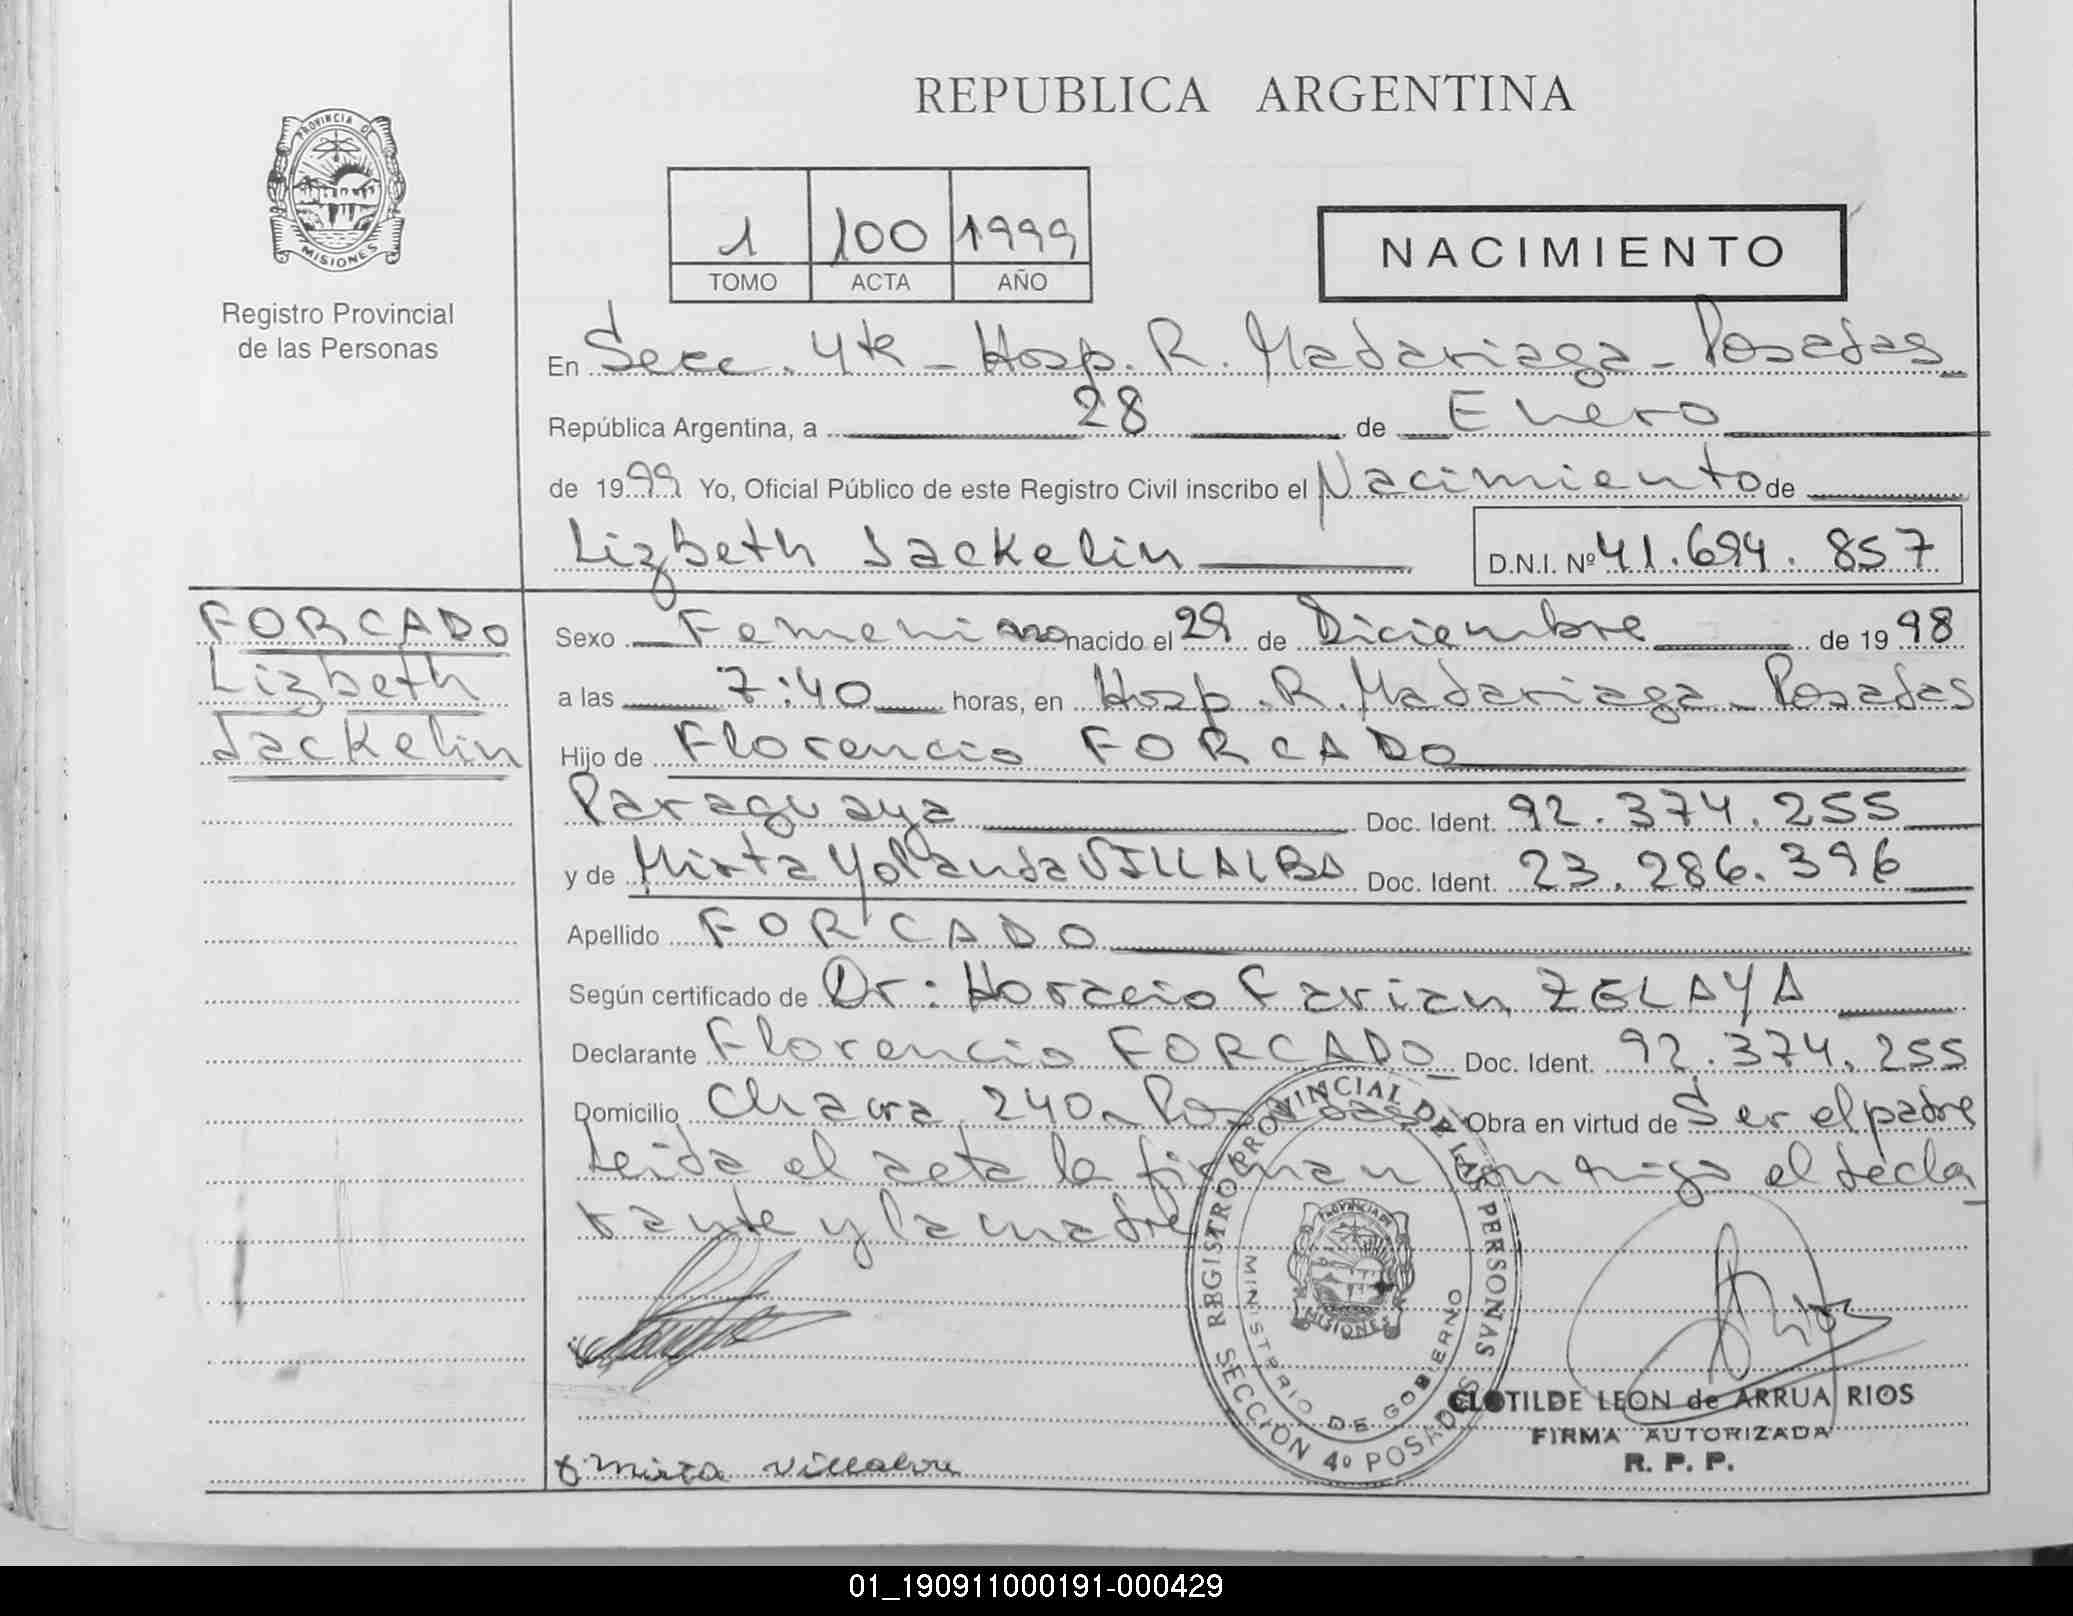 REPUBLICA ARGENTINA
PROVINCIA DE
MISIONES
Registro Provincial
de las Personas
1 100 1999
TOMO ACTA AÑO
NACIMIENTO
En Secc. 4ta - Hosp. R. Madariaga - Posadas
República Argentina, a 28 de Enero
de 1999 Yo, Oficial Público de este Registro Civil inscribo el Nacimiento de
Lizbeth Jackelin D.N.I. Nº 41.694.857
FORCADO
Lizbeth
Jackelin
Sexo Femenino nacido el 29 de Diciembre de 1998
a las 7:40 horas, en Hosp. R. Madariaga - Posadas
Hijo de Florencio FORCADO
Paraguaya Doc. Ident. 92.374.255
y de Mirta Yolanda VILLALBA Doc. Ident. 23.286.396
Apellido FORCADO
Según certificado de Dr: Horacio Farian ZELAYA
Declarante Florencio FORCADO Doc. Ident. 92.374.255
Domicilio Chacra 240 - Posadas Obra en virtud de Ser el padre
Leida el acta la firman conmigo el decla
rante y la madre
REGISTRO PROVINCIAL DE LAS PERSONAS
MINISTERIO DE GOBIERNO
PROVINCIA DE
MISIONES
SECCIÓN 4º POSADAS
CLOTILDE LEON de ARRUA RIOS
FIRMA AUTORIZADA
R. P. P.
Mirta Villalba
01_190911000191-000429